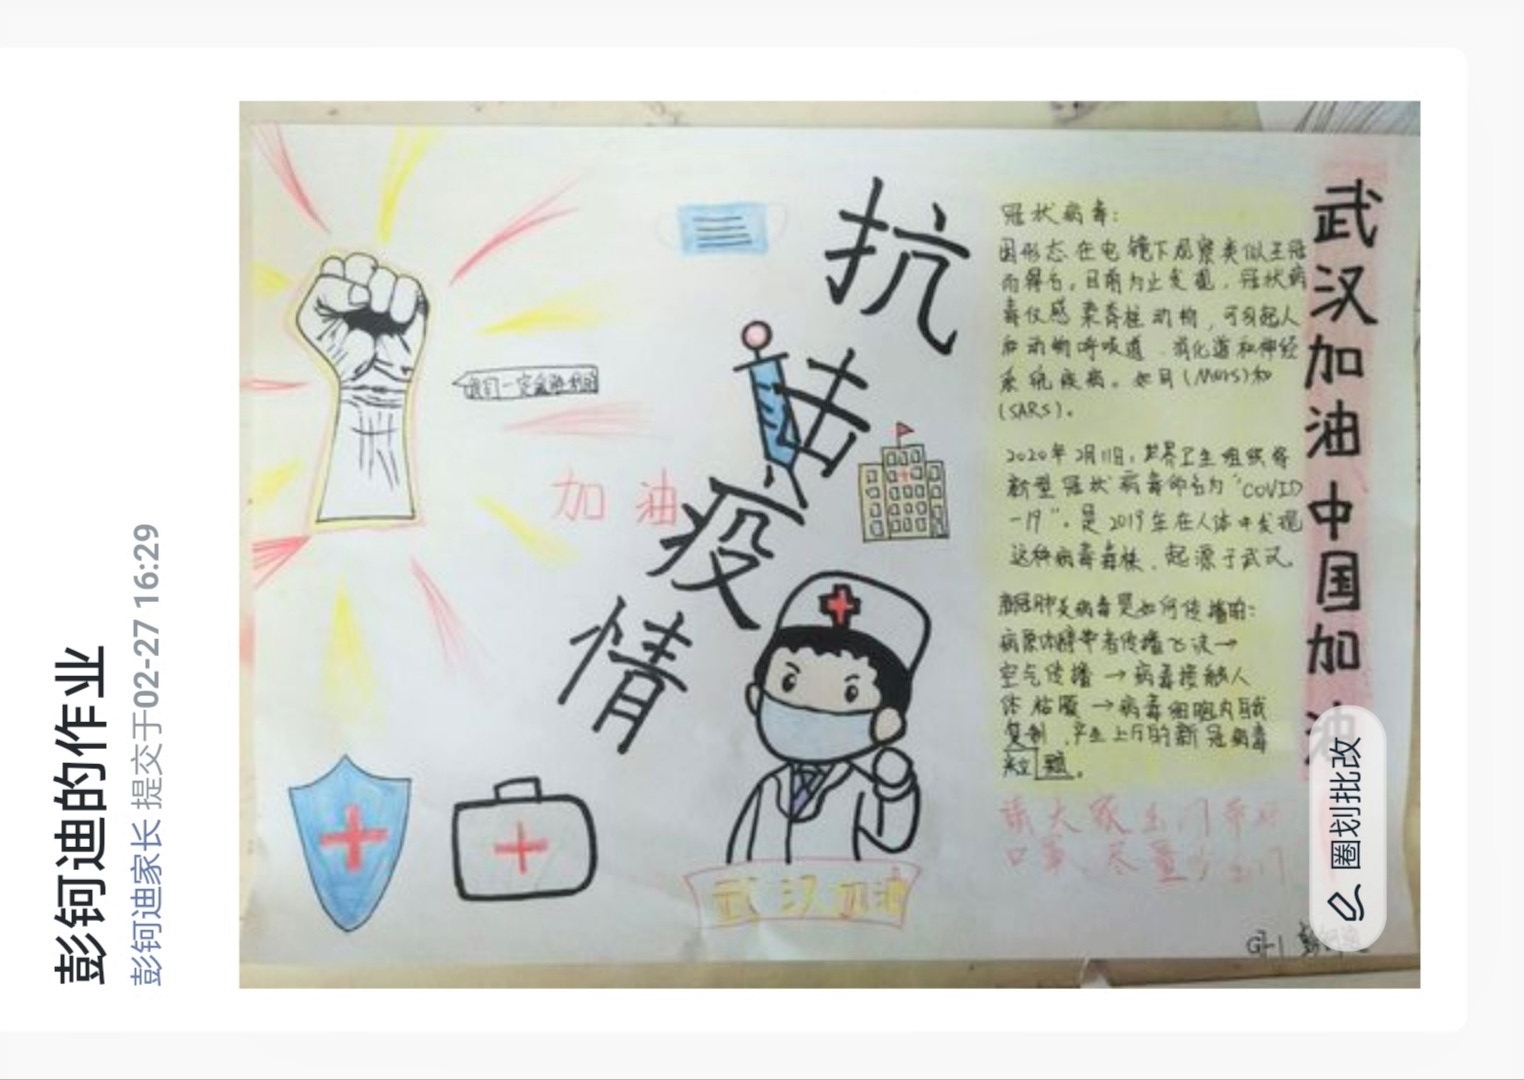 彭钶迪的作业
彭钶迪家长 提交于02-27 16:29
抗击疫情
武汉加油中国加油
我们一定会胜利的
加油
冠状病毒:
因形态在电镜下观察类似王冠
而得名。目前为止发现,冠状病
毒仅感染脊椎动物,可引起人
和动物呼吸道、消化道和神经
系统疾病。如同(Mers)和
(SARS)。
2020年2月11日,世界卫生组织将
新型冠状病毒命名为“COVID
-19”。是2019年在人体中发现
这种病毒毒株,起源于武汉。
新冠肺炎病毒是如何传播的:
病原体携带者传播飞沫→
空气传播→病毒接触人
体粘膜→病毒细胞内
复制,产生上万的新冠病毒
颗
请大家出门带好
口罩,尽量少出门
武汉加油
G7-1
圈划批改